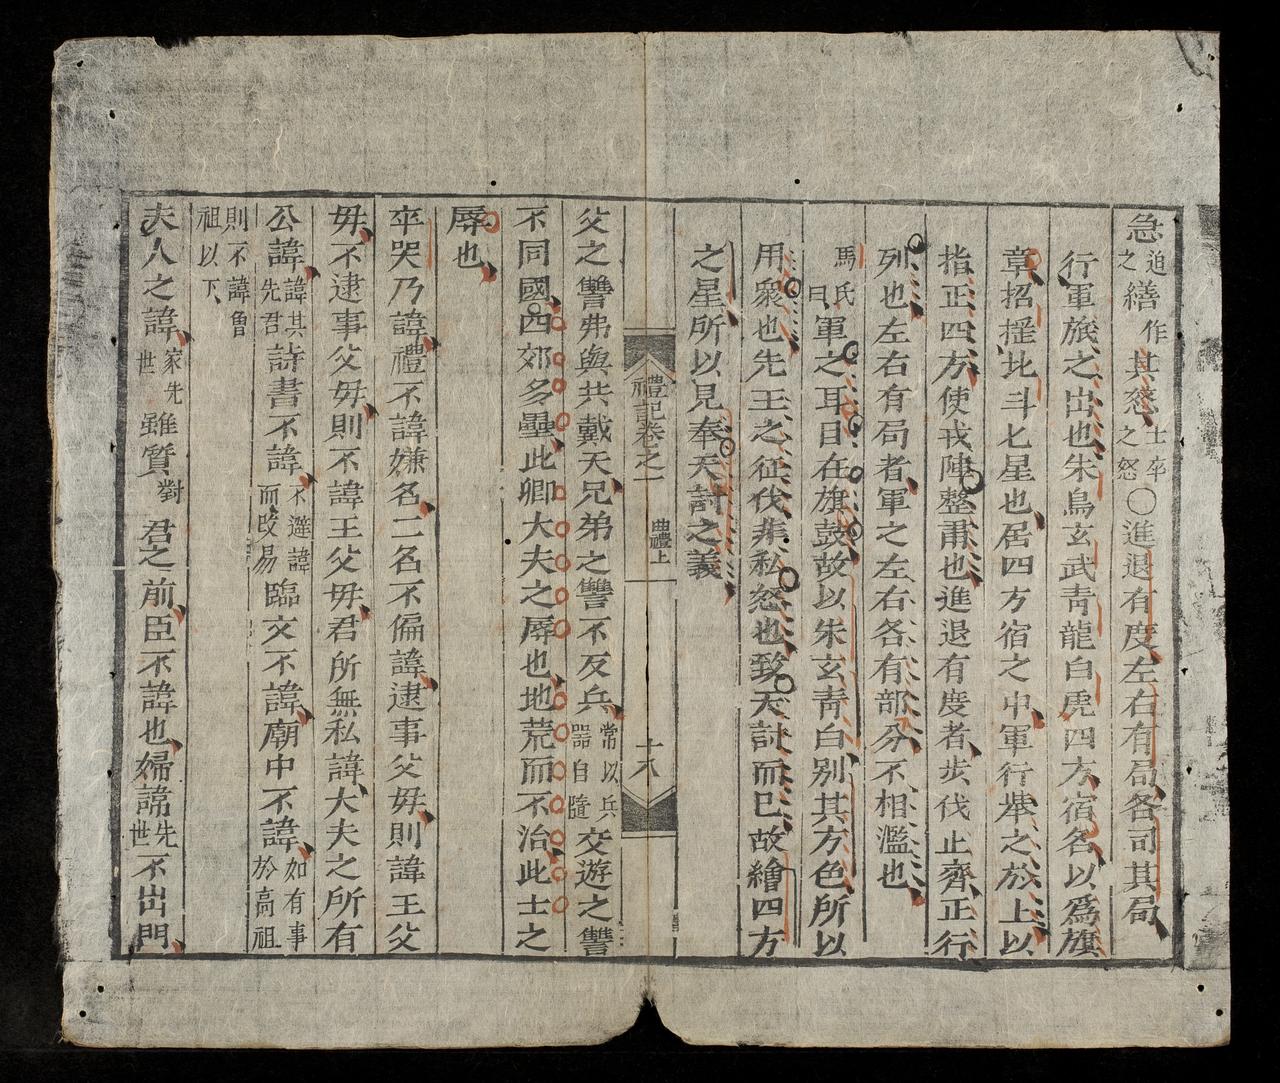 急迫之繕作其怒士卒之怒○進退有度左右有局各司其局
行軍旅之出也朱鳥玄武靑龍白虎四方宿名以爲旗
章招搖北斗七星也居四方宿之中軍行舉之於上以
指正四方使戎陣整肅也進退有度者步伐止齊正行
列也左右有局者軍之左右各有部分不相濫也
馬氏曰軍之耳目在旗鼓故以朱玄靑白別其方色所以
用衆也先王之征伐非私怒也致天討而已故繪四方
之星所以見奉天討之義
禮記卷之一 曲禮上 十八
父之讐弗與共戴天兄弟之讐不反兵常以兵器自隨交遊之讐
不同國四郊多壘此卿大夫之辱也地荒而不治此士之
辱也
卒哭乃諱禮不諱嫌名二名不偏諱逮事父母則諱王父
母不逮事父母則不諱王父母君所無私諱大夫之所有
公諱諱其先君詩書不諱不避諱而改易臨文不諱廟中不諱如有事於高祖
則不諱曾祖以下
夫人之諱家先世雖質對君之前臣不諱也婦諱先世不出門